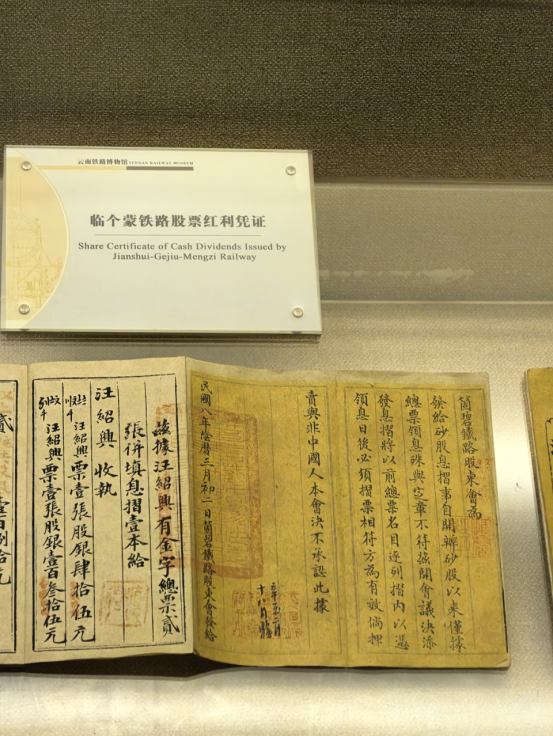 云南铁路博物馆 YUNNAN RAILWAY MUSEUM
临个蒙铁路股票红利凭证
Share Certificate of Cash Dividends Issued by
Jianshui-Gejiu-Mengzi Railway
箇碧鐵路股東會為
發給砂股息摺事自開辦砂股以來僅據
總票領息殊與定章不符茲開會議決添
發息摺將以前總票名目逐列摺內以憑
領息日後必須摺票相符方為有效倘押
賣與非中國人本會決不承認此據
民國八年陰曆三月初二日箇碧鐵路股東會發給
茲據汪紹興有金字總票貳
張併填息摺壹本給
汪紹興 收執
汪紹興票壹張股銀肆拾伍元
汪紹興票壹張股銀壹百叁拾伍元